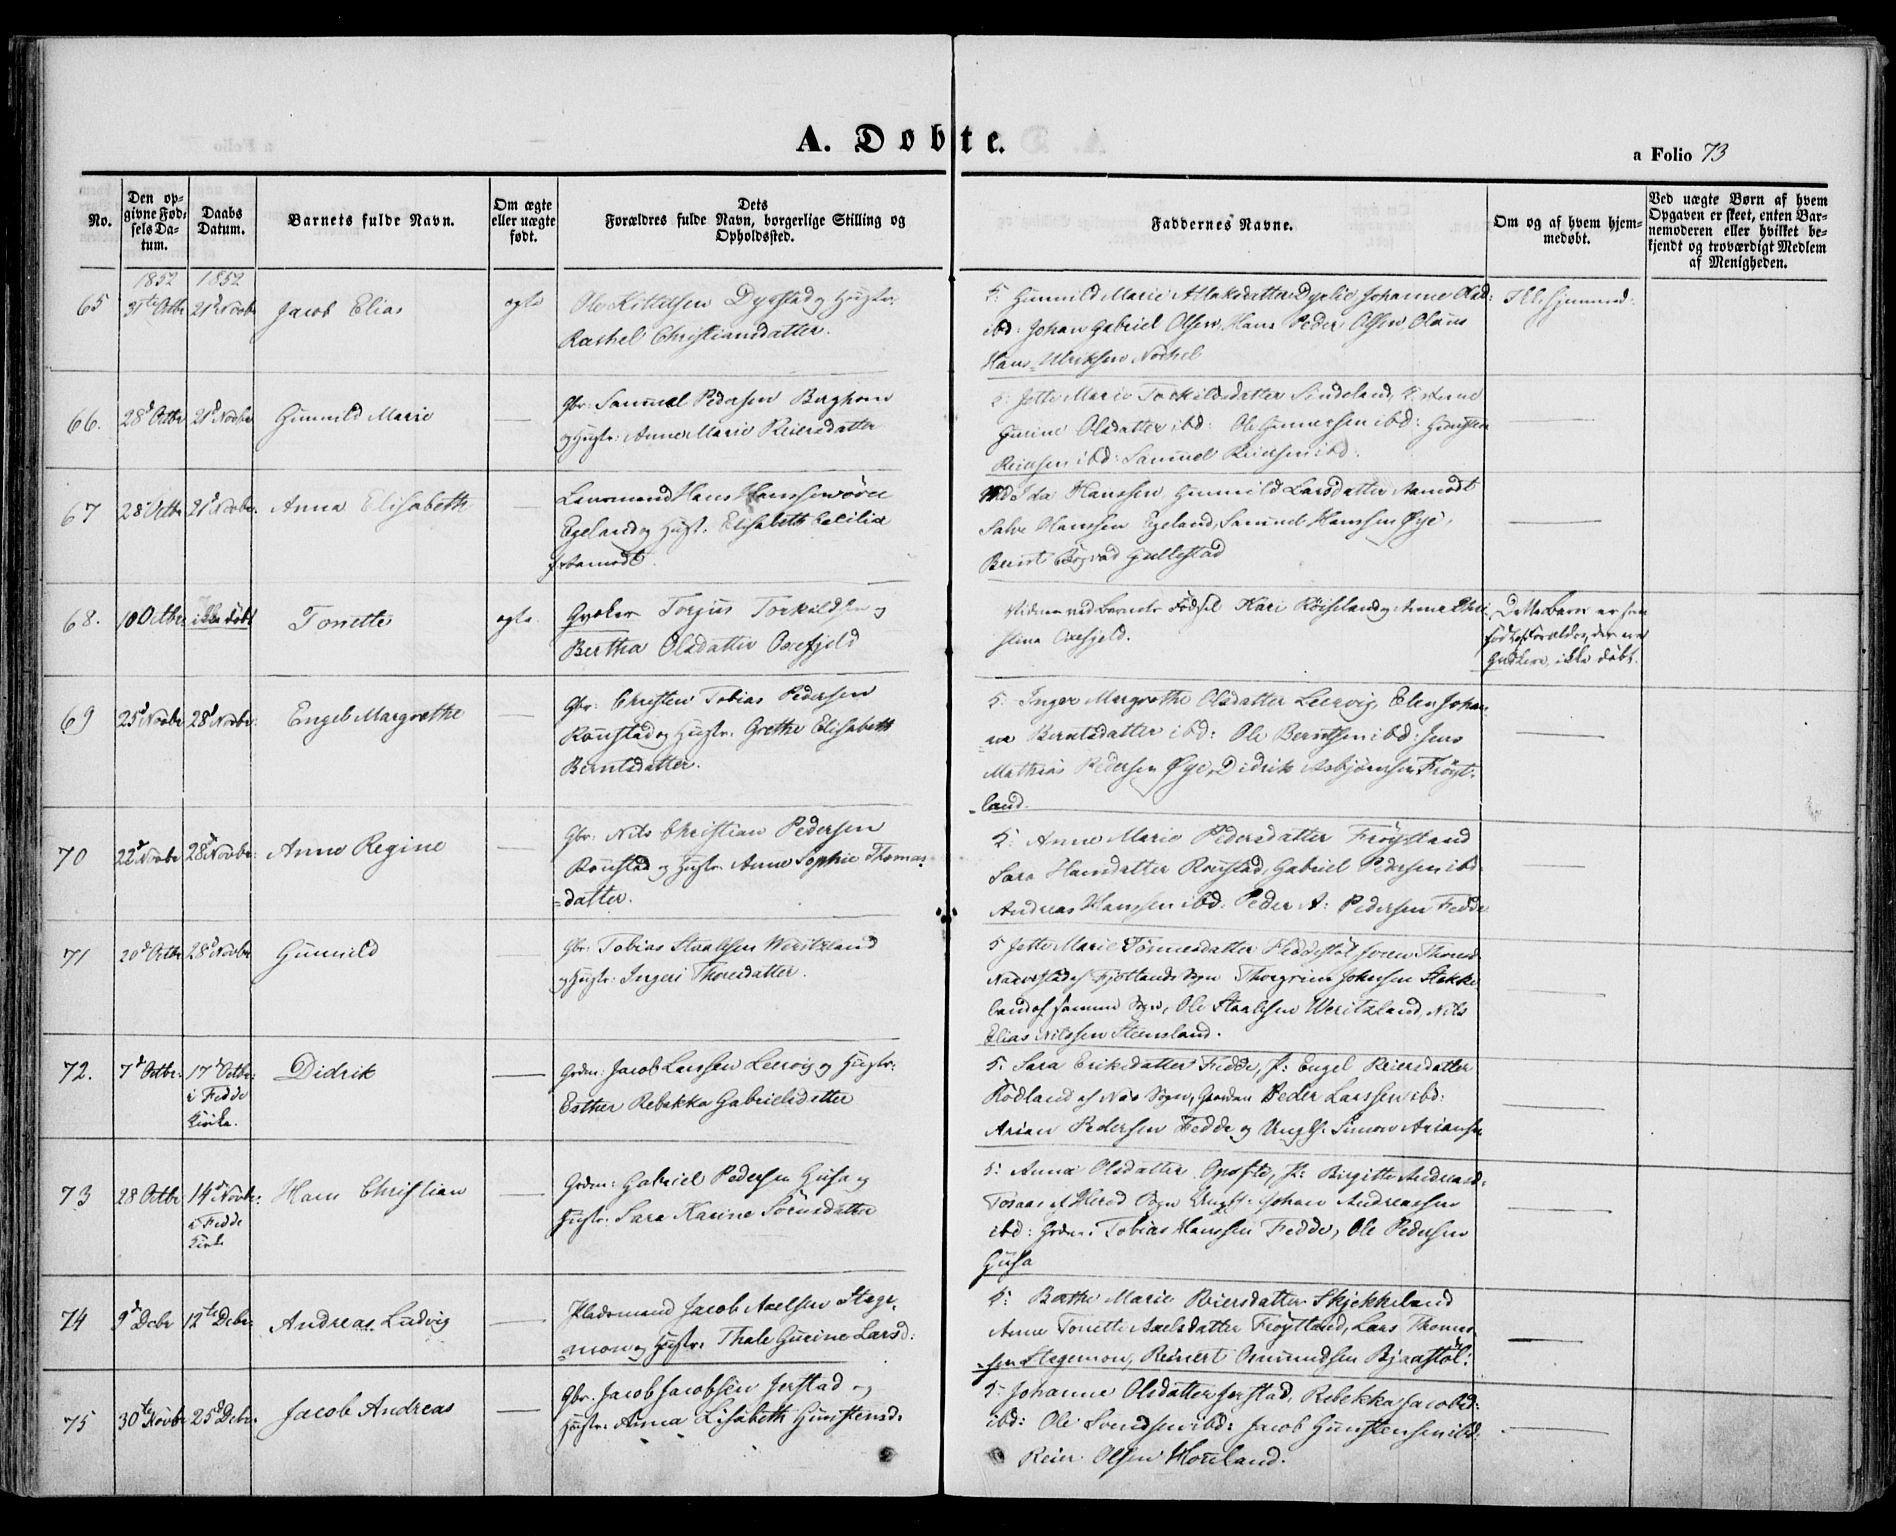 A. Døbte.
a Folio 73
No.
Den opgivne Fødsels Datum.
Daabs Datum.
Barnets fulde Navn.
Om ægte eller uægte født.
Dets Forældres fulde Navn, borgerlige Stilling og Opholdssted.
Faddernes Navne.
Om og af hvem hjemmedøbt.
Ved uægte Børn af hvem Opgaven er skeet, enten Barnemoderen eller hvilket bekjendt og troværdigt Medlem af Menigheden.
1852 1852
65 31te Octbr 21d Novbr Jacob Elias ægte
Ole Kittelsen Dyrstad og Hustr:
Rachel Christiansdatter.
5: Gunnild Marie Aslaksdatter Dyrlie, Johanne Olsd:
ibd: Johan Gabriel Olsen, Hans Peder Olsen, Olaus
Hans Ulriksen
66. 28d Octbr 21d Novbr Gunnild Marie —
Gbr: Samuel Pedersen Berghom
og Hustr: Anne Marie Reiersdatter
5: Jette Marie Torkildsdatter Sindeland, P: Anne
Gurine Olsdatter ibd: Ole Gunnersen ibd: Gunsten
Reiersen ibd: Samuel Reiersen ibd. —
67 28d Octbr 21d Novbr. Anna Elisabeth —
Lensmand Hans Hanssen
Egeland og Hust: Elisabeth Cecilia
f: Aamodt.
Ida Hanssen, Gunnild Larsdatter Aamodt
Salve Hanssen Egeland, Samuel Hanssen Øye,
Bernt Gullestad —
68. 10 Octbr ikke døbt Tonette ægte
Qvæker Torjus Torkildsen og
Bertha Olsdatter Oxefjeld
Vidner ved Barnets Fødsel Kari Røiseland og Anna Chri
stina Oxefjeld.
Dette Barn er som
født af Forældre, der ere
Qvækere, ikke døbt.
69 25d Novbr 28d Novbr. Engel Margrethe —
Gbr: Christen Tobias Pedersen
Rønstad og Hustr. Grethe Elisabeth
Berntsdatter.
5: Inger Margrethe Olsdatter Leervig, Elen Johan-
ne Berntsdatter ibd: Ole Berntsen ibd: Jens
Mathias Pedersen Øye, Didrik Asbjørnsen Frøyt-
land. —
70 22d Novbr 28d Novbr: Anne Regine —
Gbr: Nils Christian Pedersen
Rønstad og Hustr. Anne Sophie Thomas-
datter.
5: Anne Marie Pedersdatter Frøytland
Sara Hansdatter Rønstad, Gabriel Pedersen ibd:
Andreas Hanssen ibd: Peder A: Pedersen Fedde —
71 20d Octbr 28d Novbr Gunnild —
Gbr: Tobias Staalesen Weritzland
og Hustr: Ingeri Thoresdatter.
5 Jette Marie Tønnesdatter Feddestøl, Soren Thorsd.
af Fjotlands Sogn Thorgrim Johnsen Stakke
land af samme Sogn, Ole Staalesen Weritzland, Nils
Elias Nilssen Steensland. —
72. 7d Octbr: 17d Octbr: i Fedde Kirke. Didrik —
Grdm: Jacob Larssen Leervig og Hustr:
Esther Rebekka Gabrielsdatter
5: Sara Eriksdatter Fedde, P: Engel Reiersdatter
Rødland af Næs Sogn, Grdm Peder Larssen ibd:
Arian Pedersen Fedde og Ungk: Simon Ariansen —
73 28 Octbr 14d Novbr: i Fedde Kirke Hans Christian —
Grdm: Gabriel Pedersen Gusa og
Hustr: Sara Karine Sørensdatter
5: Anna Olsdatter Opofte, P: Birgitte Andreasd:
Tosaas af Herod Sogn Ungk: Johan Andreassen
ibd: Grdm: Tobias Hanssen Fedde, Ole Pedersen
Gusa —
74 9d Decbr 12te Decbr: Andreas Ludvig —
Pladsmand Jacob Axelsen Stage-
mon og Hustr. Thale Gurine Larsd:
5: Berthe Marie Reiersdatter Skjekkeland
Anne Tonette Axelsdatter Frøytland, Lars Thomas-
sen Stagemon, Reinert Omundsen Bjaastøl: —
75 30te Novbr 25d Decbr. Jacob Andreas —
Gbr. Jacob Jacobsen Jerstad og
Hustr: Anna Lisabeth Gunstensd.
5: Johanne Olsdatter Jerstad, Rebekka Jacobsd:
ibd: Ole Svendsen ibd: Jacob Gunstensen ibd:
Reier Olsen Houeland. —